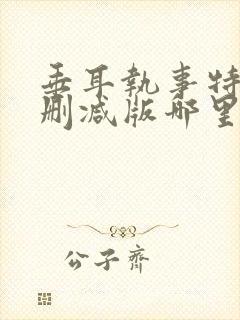 垂耳執事特
刪減版哪里
公子齊